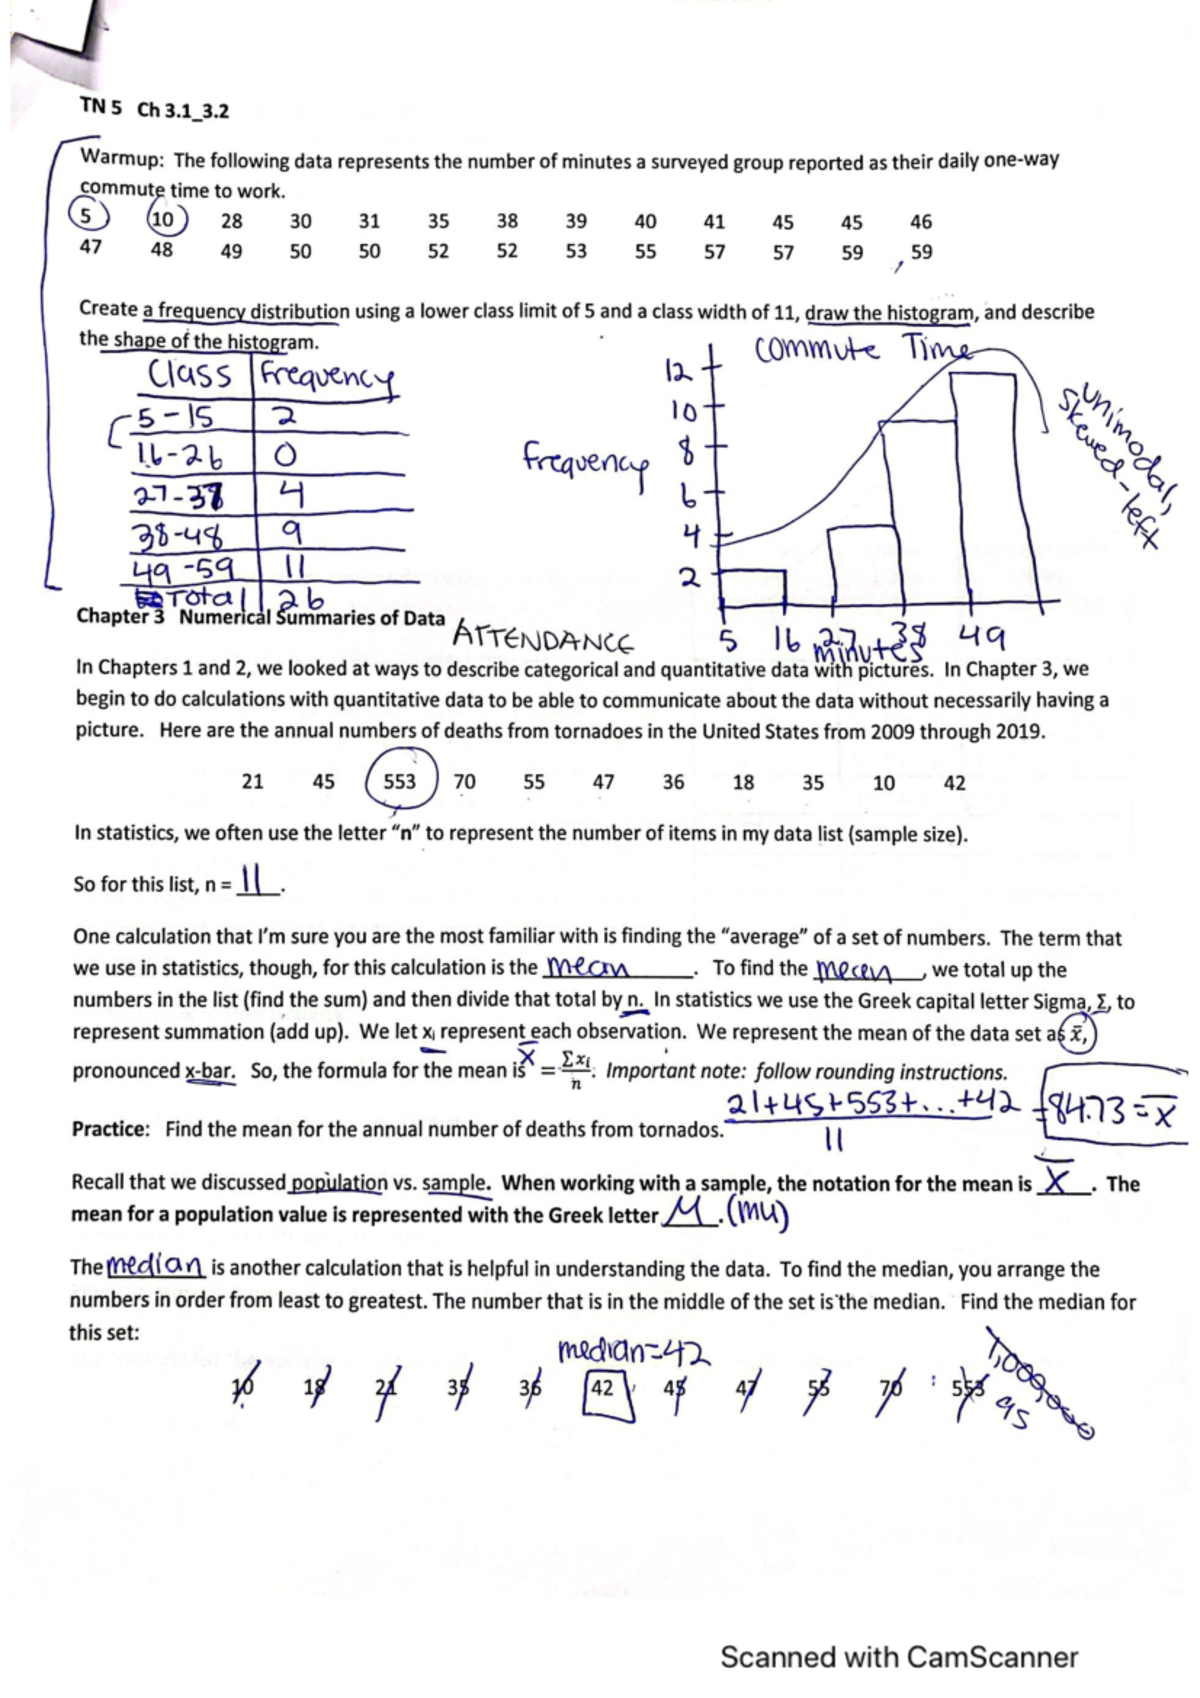 TN 5 Ch 3.1_3.2
Warmup: The following data represents the number of minutes a surveyed group reported as their daily one-way
commute time to work.
5 10 28 30 31 35 38 39 40 41 45 45 46
47 48 49 50 50 52 52 53 55 57 57 59 59
Create a frequency distribution using a lower class limit of 5 and a class width of 11, draw the histogram, and describe
the shape of the histogram.
Class Frequency
5-15 2
16-26 0
27-37 4
38-48 9
49-59 11
Total 26
Commute Time
12
10
8
6
4
2
Frequency
unimodal,
skewed-left
5 16 27 38 49
minutes
Chapter 3 Numerical Summaries of Data ATTENDANCE
In Chapters 1 and 2, we looked at ways to describe categorical and quantitative data with pictures. In Chapter 3, we
begin to do calculations with quantitative data to be able to communicate about the data without necessarily having a
picture. Here are the annual numbers of deaths from tornadoes in the United States from 2009 through 2019.
21 45 553 70 55 47 36 18 35 10 42
In statistics, we often use the letter “n” to represent the number of items in my data list (sample size).
So for this list, n = 11.
One calculation that I’m sure you are the most familiar with is finding the “average” of a set of numbers. The term that
we use in statistics, though, for this calculation is the mean. To find the mean, we total up the
numbers in the list (find the sum) and then divide that total by n. In statistics we use the Greek capital letter Sigma, Σ, to
represent summation (add up). We let xᵢ represent each observation. We represent the mean of the data set as x̄,
pronounced x-bar. So, the formula for the mean is x̄ = Σxᵢ/n. Important note: follow rounding instructions.
Practice: Find the mean for the annual number of deaths from tornados. 21+45+553+...+42 / 11 = 84.73 = x̄
Recall that we discussed population vs. sample. When working with a sample, the notation for the mean is x̄. The
mean for a population value is represented with the Greek letter μ. (mu)
The median is another calculation that is helpful in understanding the data. To find the median, you arrange the
numbers in order from least to greatest. The number that is in the middle of the set is the median. Find the median for
this set:
median=42
10 18 21 35 36 42 45 47 55 70 553
1,000,000
95
Scanned with CamScanner